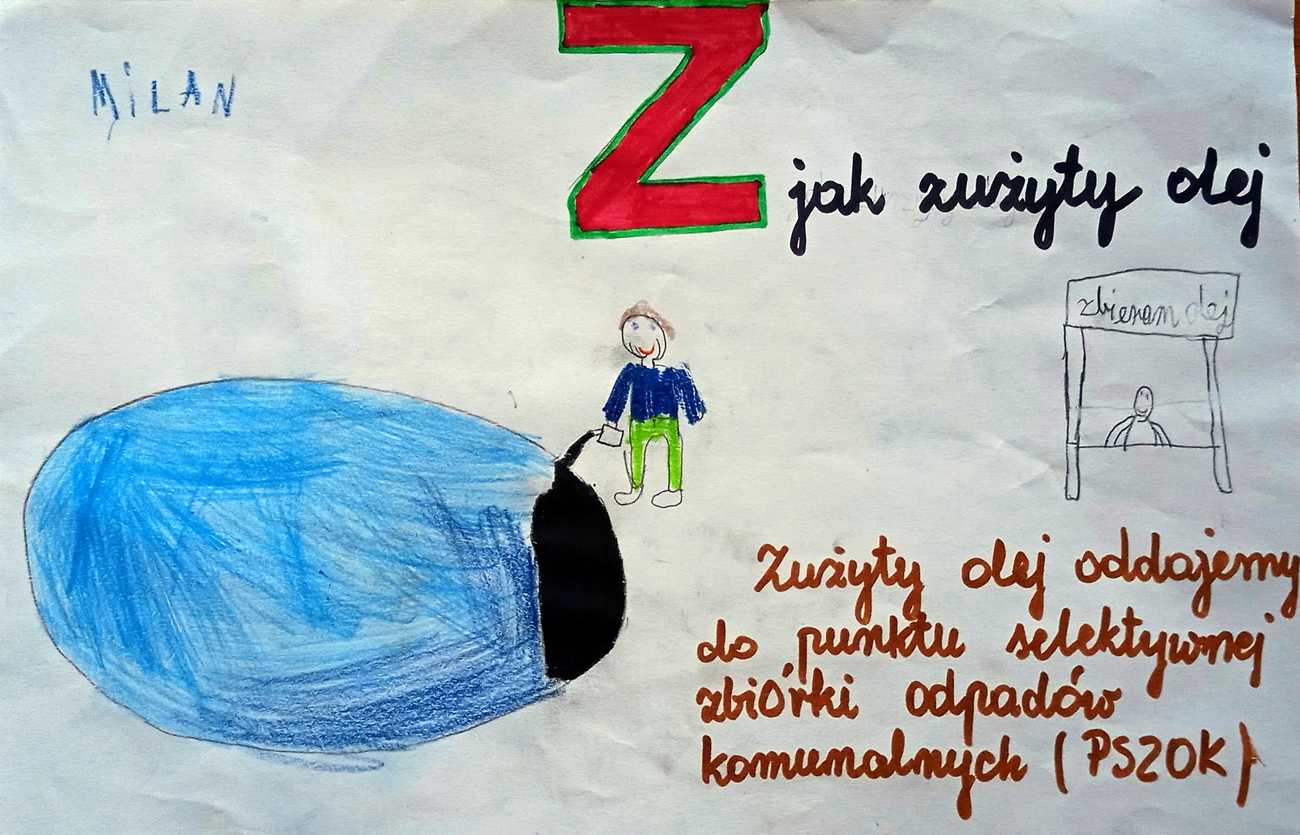 MiLAN
Z jak zużyty olej
zbieram olej
Zużyty olej oddajemy
do punktu selektywnej
zbiórki odpadów
komunalnych (PSZOK)